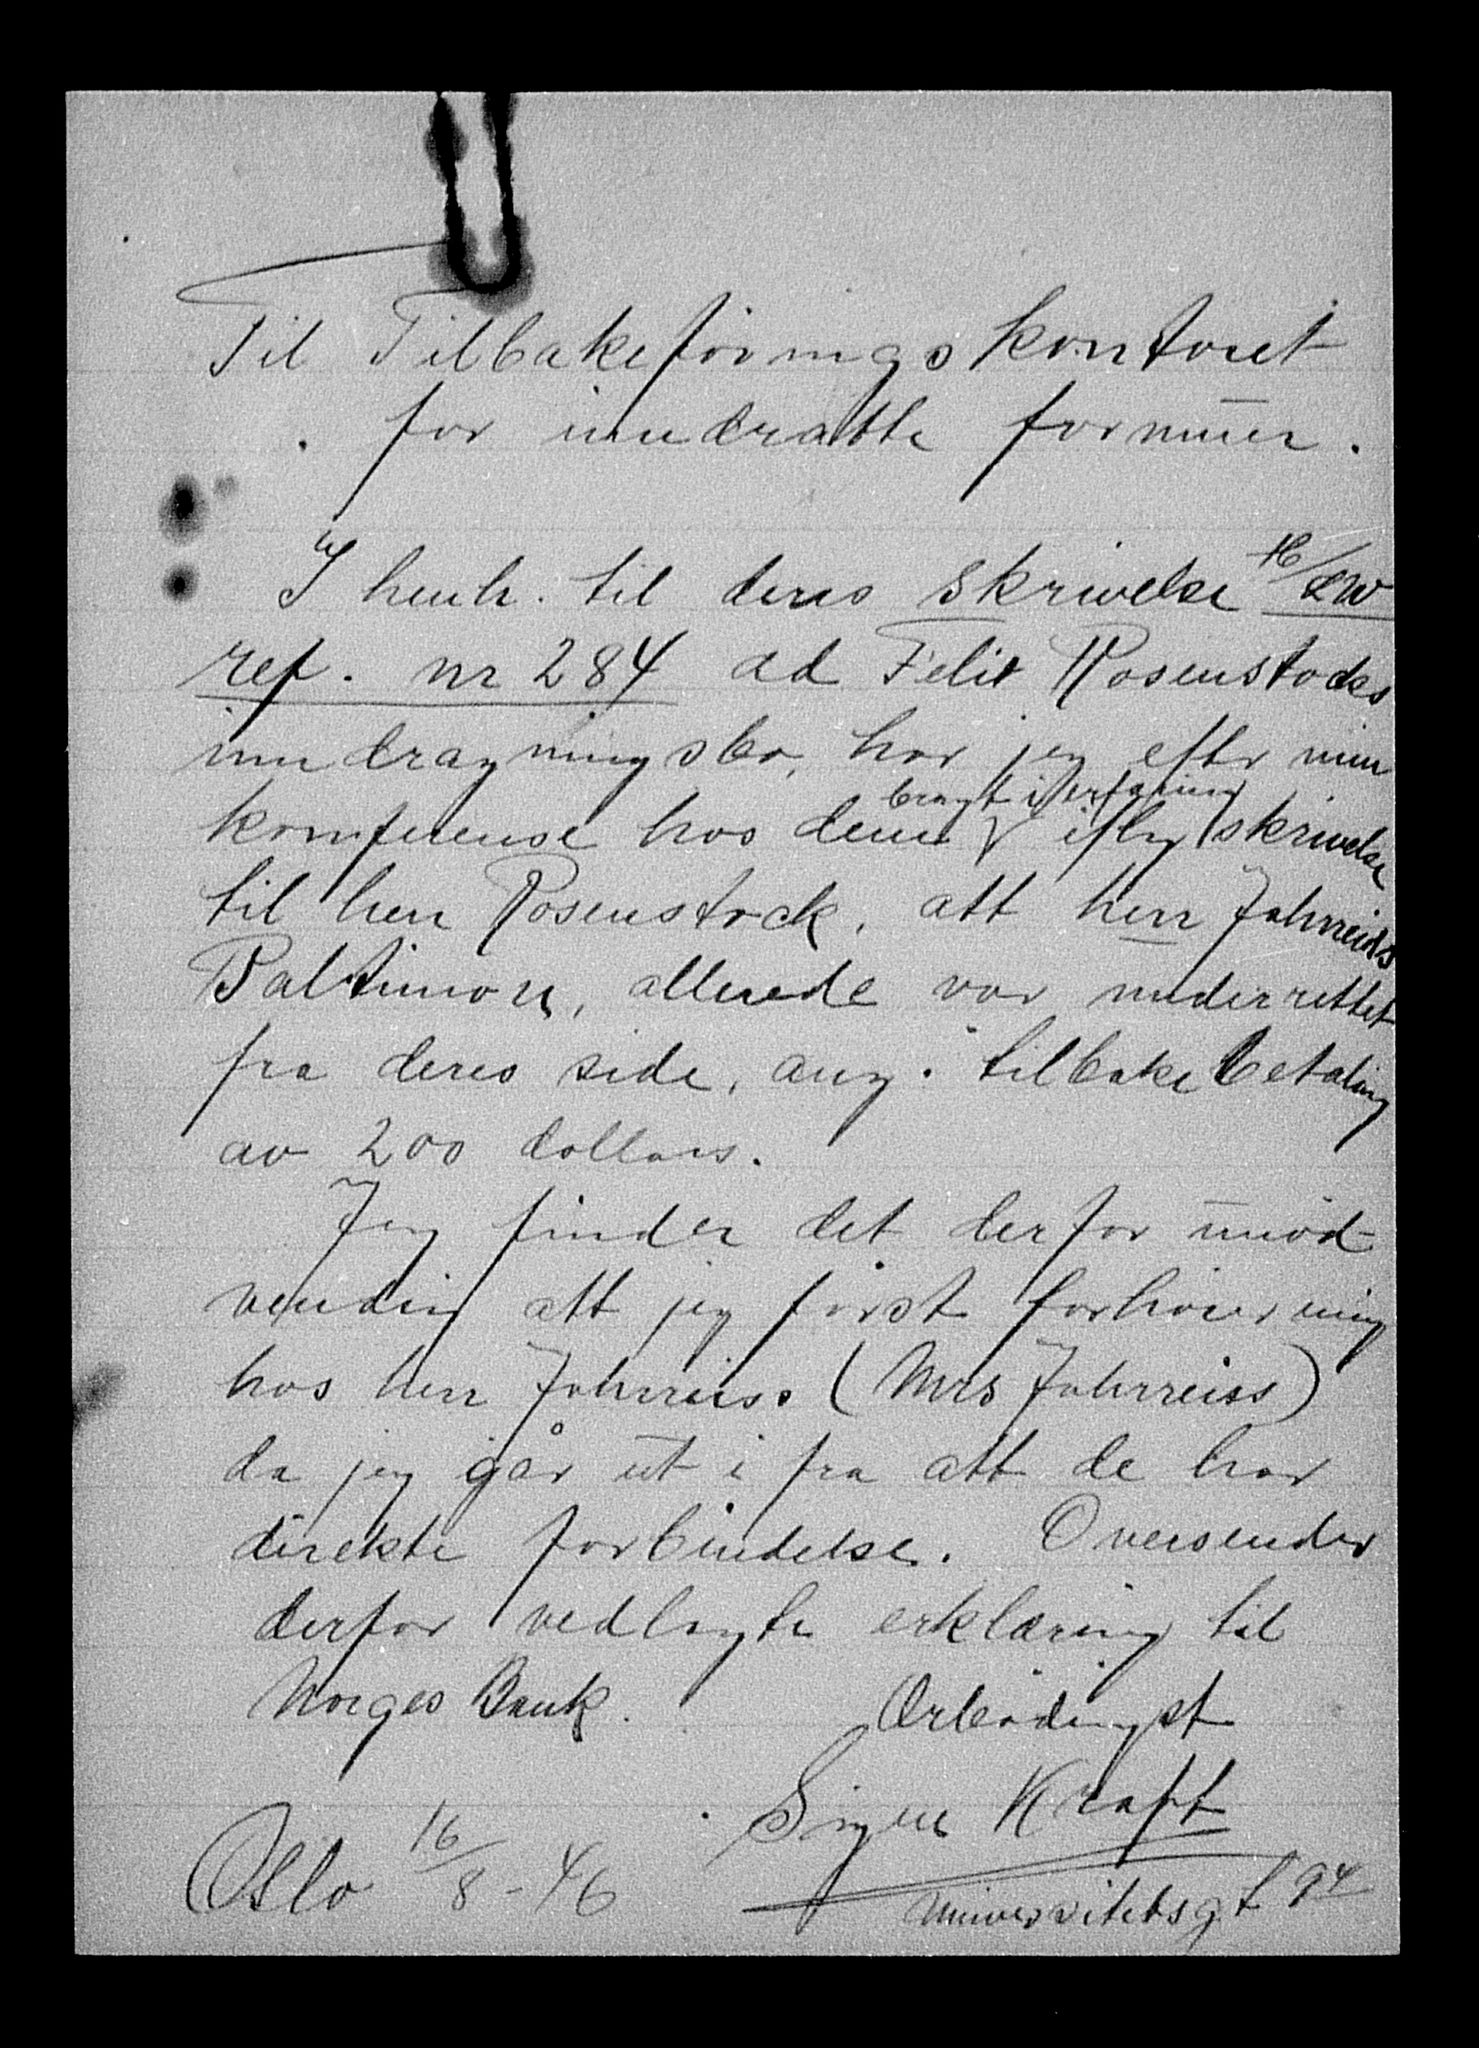 Til Tilbakeföringskontoret
for inndratte formuer.
I henh. til deres skrivelse HB/EW
ref. nr 284 ad Felix Rosenstocks
inndragningsbo, har jeg efter min
konferense hos dem bragt i erfaring iflg skrivelse
til herr Rosenstock, att herr Jahrreiss
Baltimore, allerede var underrettet
fra deres side, ang. tilbakebetaling
av 200 dollars.
Jeg finder det derfor unöd-
vendig att jeg först forhörer mig
hos herr Jahrreiss (Mrs Jahrreiss)
da jeg går ut i fra att de har
direkte forbindelse. Oversender
derfor vedlagte erklæring til
Norges Bank.
Ærbödigst
Signe Kraft
Oslo 16/8-46
Universitetsgt 94